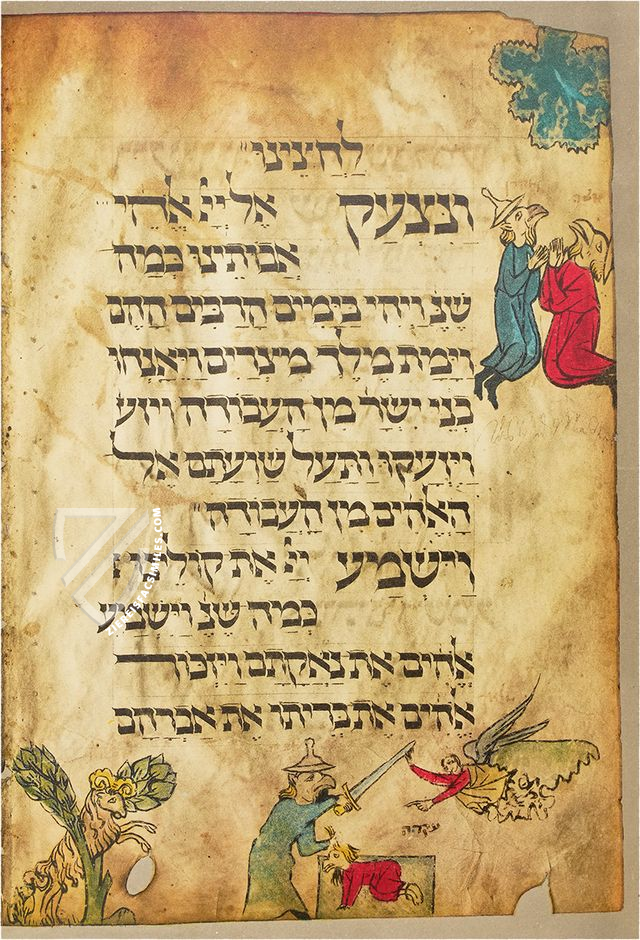 לחצינו
ונצעק אל יי אלהי
אבותינו כמה
שנ ויהי בימים הרבים ההם
וימת מלך מצרים ויאנחו
בני ישר מן העבודה ויזע
ויזעקו ותעל שועתם אל
האלהים מן העבודה
וישמע יי את קולינו
כמה שנ וישמע
אלהים את נאקתם ויזכור
אלהים את בריתו את אברהם
עקדה
ZIEREISFACSIMILES.COM